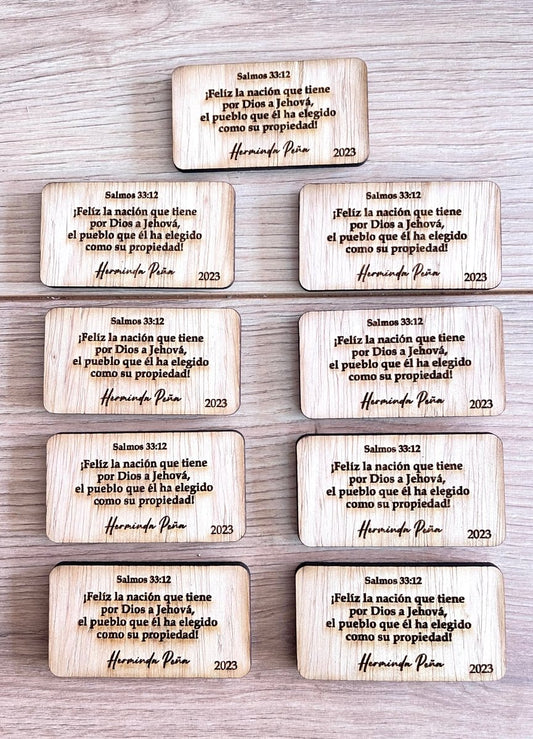 Salmos 33:12
¡Felíz la nación que tiene
por Dios a Jehová,
el pueblo que él ha elegido
como su propiedad!
Herminda Peña 2023
Salmos 33:12
¡Felíz la nación que tiene
por Dios a Jehová,
el pueblo que él ha elegido
como su propiedad!
Herminda Peña 2023
Salmos 33:12
¡Felíz la nación que tiene
por Dios a Jehová,
el pueblo que él ha elegido
como su propiedad!
Herminda Peña 2023
Salmos 33:12
¡Felíz la nación que tiene
por Dios a Jehová,
el pueblo que él ha elegido
como su propiedad!
Herminda Peña 2023
Salmos 33:12
¡Felíz la nación que tiene
por Dios a Jehová,
el pueblo que él ha elegido
como su propiedad!
Herminda Peña 2023
Salmos 33:12
¡Felíz la nación que tiene
por Dios a Jehová,
el pueblo que él ha elegido
como su propiedad!
Herminda Peña 2023
Salmos 33:12
¡Felíz la nación que tiene
por Dios a Jehová,
el pueblo que él ha elegido
como su propiedad!
Herminda Peña 2023
Salmos 33:12
¡Felíz la nación que tiene
por Dios a Jehová,
el pueblo que él ha elegido
como su propiedad!
Herminda Peña 2023
Salmos 33:12
¡Felíz la nación que tiene
por Dios a Jehová,
el pueblo que él ha elegido
como su propiedad!
Herminda Peña 2023